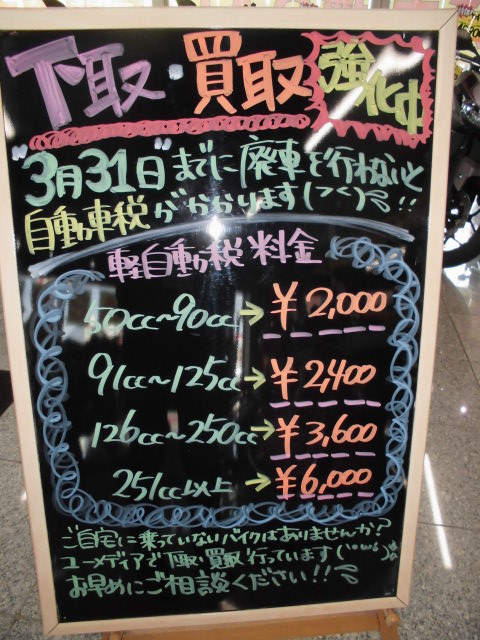 下取・買取 強化中
"3月31日"までに廃車を行わないと
自動車税がかかります(つく)!!
軽自動税料金
50cc〜90cc→¥2,000
91cc〜125cc→¥2,400
126cc〜250cc→¥3,600
251cc以上→¥6,000
ご自宅に乗っていないバイクはありませんか?
ユーメディアで下取・買取行っています
お早めにご相談ください!!